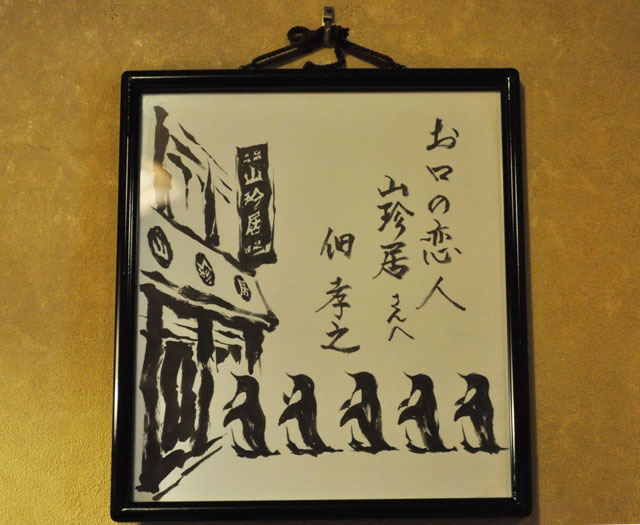 お口の恋人
山珍居さんへ
佃孝之
山珍居
山珍居